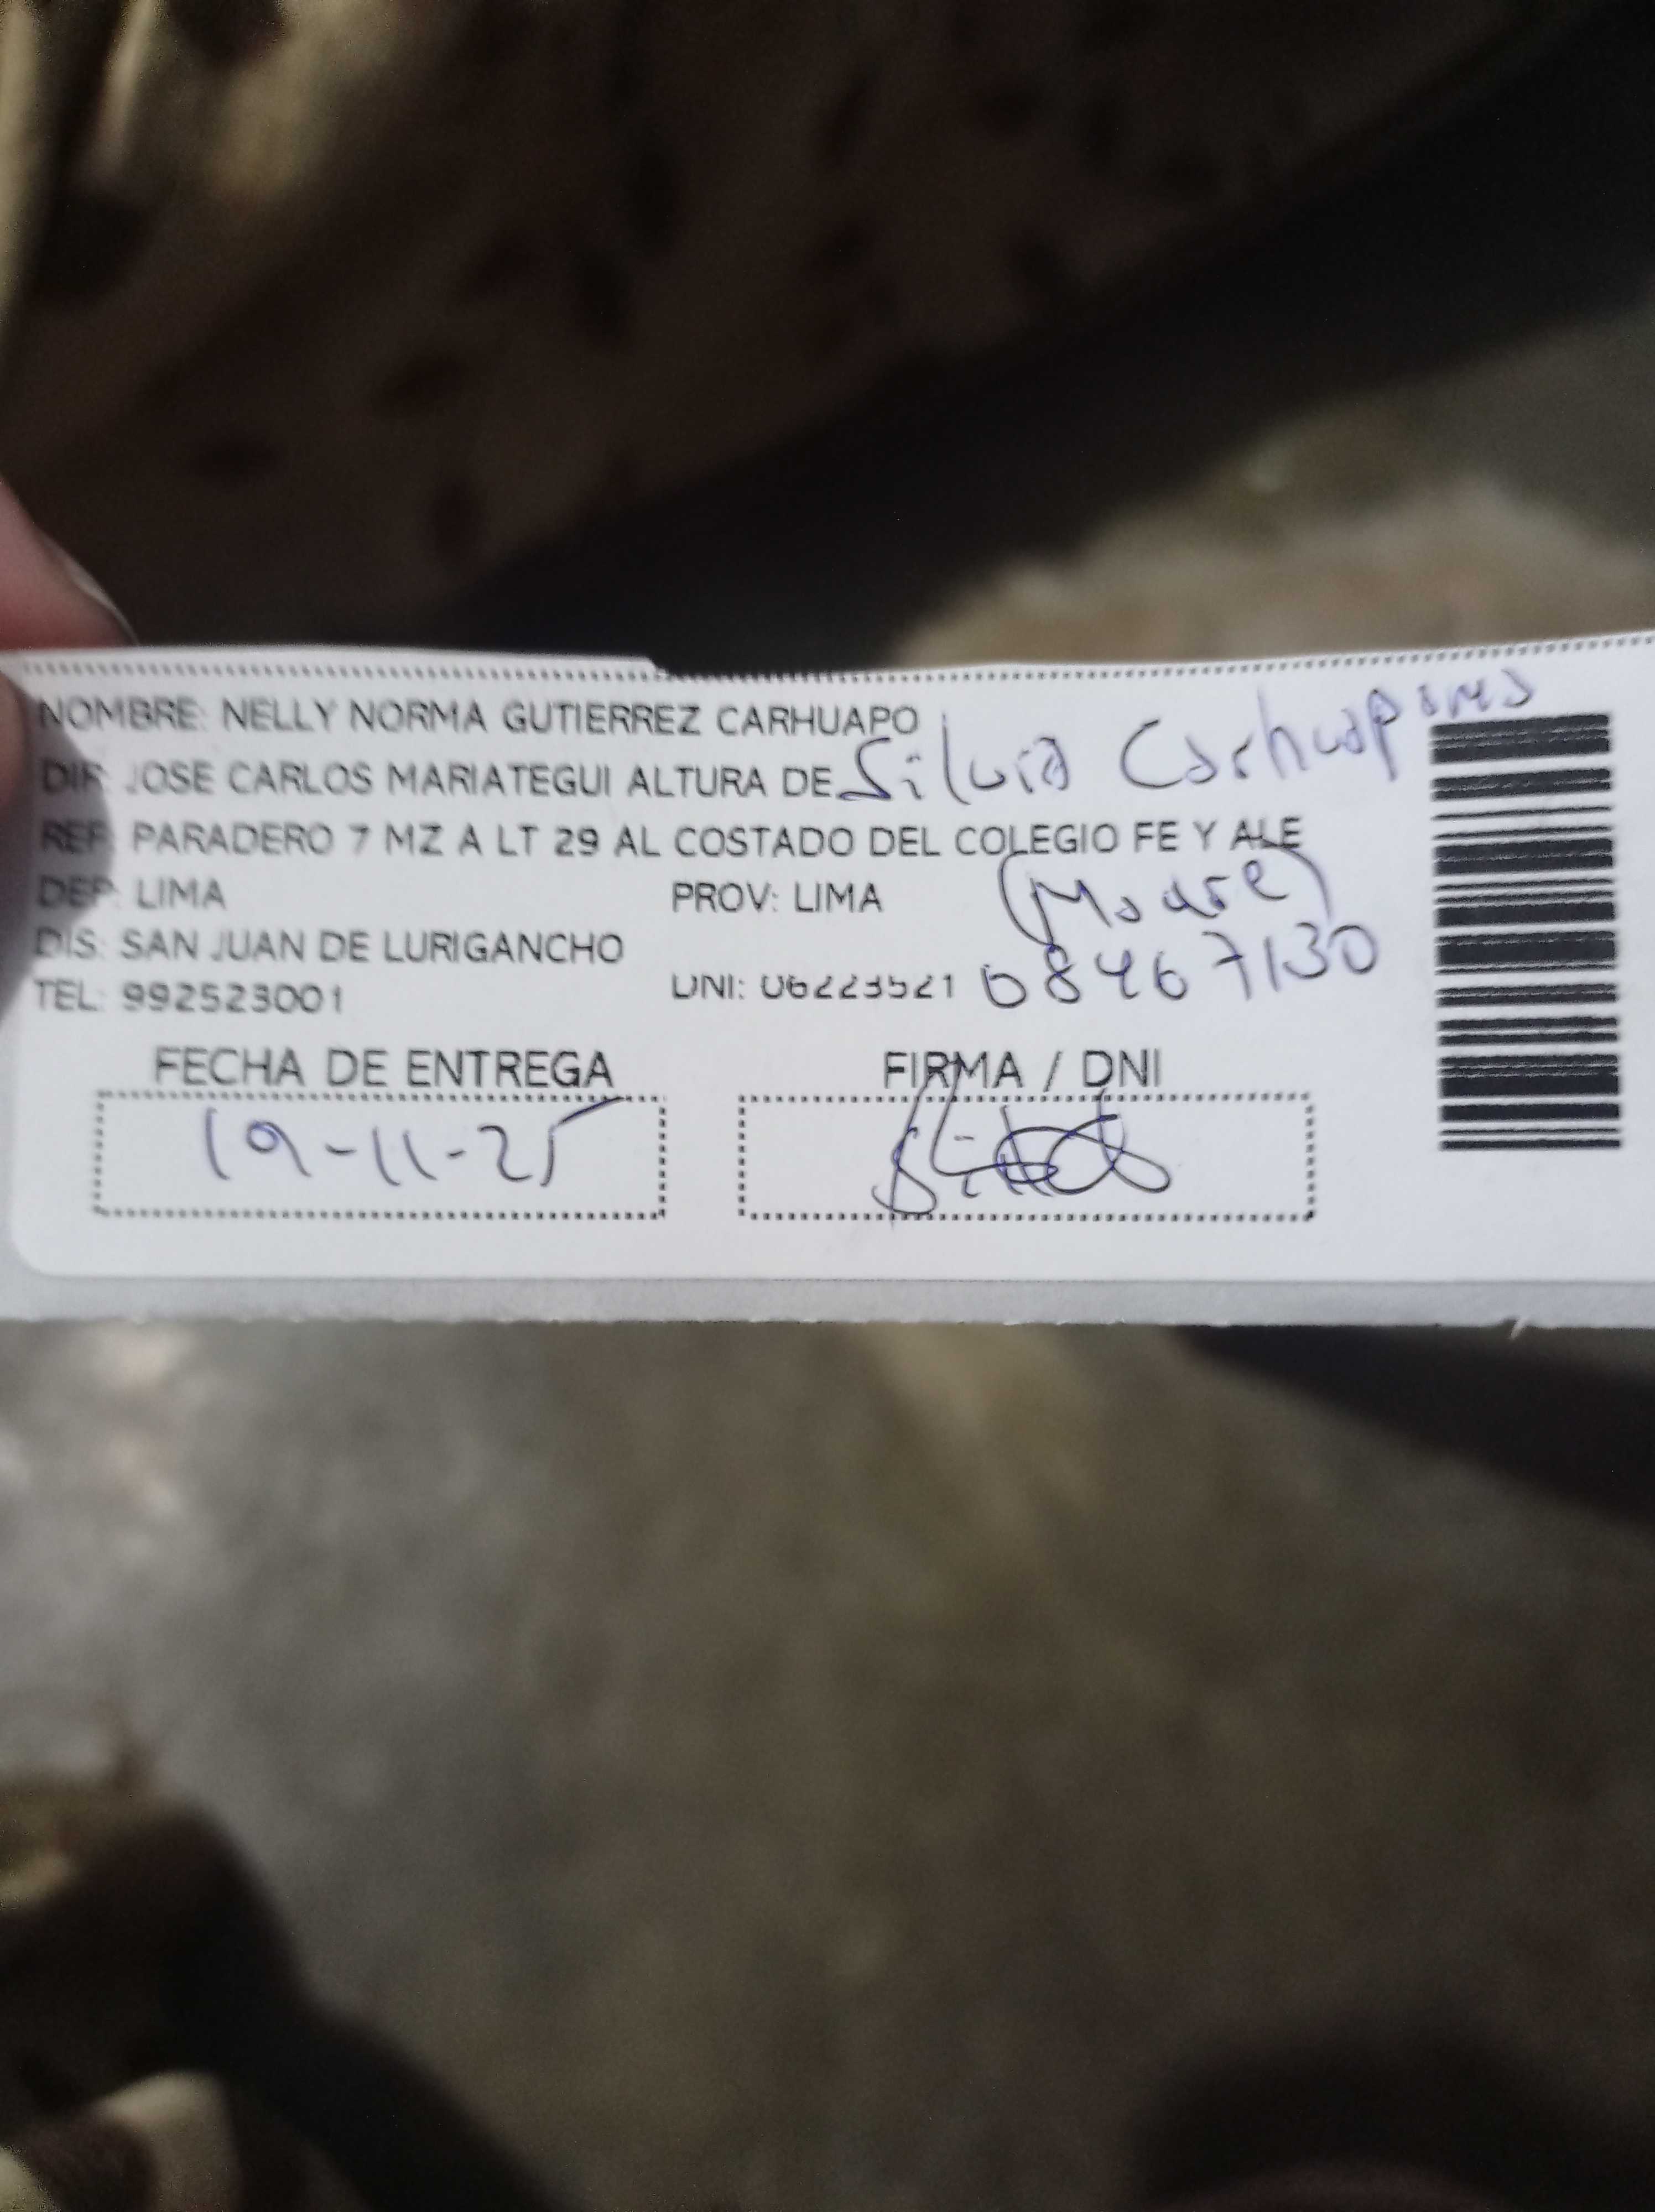 NOMBRE: NELLY NORMA GUTIERREZ CARHUAPO
Silvia Carhuapoma
DIR: JOSE CARLOS MARIATEGUI ALTURA DE
REF: PARADERO 7 MZ A LT 29 AL COSTADO DEL COLEGIO FE Y ALE
DEP: LIMA PROV: LIMA (Madre)
DIS: SAN JUAN DE LURIGANCHO
TEL: 992523001 DNI: 06223521 08467130
FECHA DE ENTREGA FIRMA / DNI
19-11-25